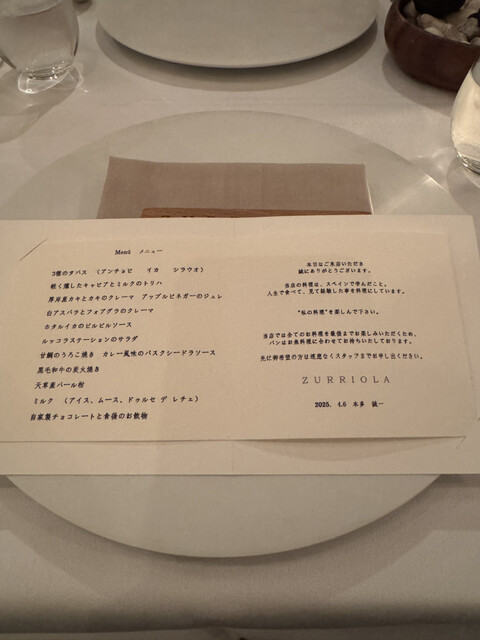 Menú メニュー
3種のタパス （アンチョビ イカ シラウオ）
軽く燻したキャビアとミルクのトリハ
厚岸産カキとカキのクレーマ アップルビネガーのジュレ
白アスパラとフォアグラのクレーマ
ホタルイカのピルピルソース
ルッコラステーションのサラダ
甘鯛のうろこ焼き カレー風味のバスクシードラソース
黒毛和牛の炭火焼き
天草産パール柑
ミルク （アイス、ムース、ドゥルセ デ レチェ）
自家製チョコレートと食後のお飲物
本日はご来店いただき
誠にありがとうございます。
当店の料理は、スペインで学んだこと。
人生で食べて、見て経験した事を料理にしています。
"私の料理"を楽しんで下さい。
当店では全てのお料理を最後までお楽しみいただくため、
パンはお魚料理に合わせてお待ちいたしております。
先に御希望の方は遠慮なくスタッフまでお申し出ください。
ZURRIOLA
2025. 4.6 本多 誠一